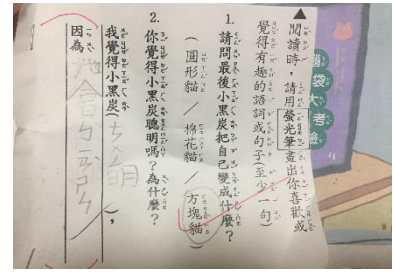 ▲閱讀時，請用螢光筆畫出你喜歡或
覺得有趣的語詞或句子(至少一句)
1. 請問最後小黑炭把自己變成什麼？
(圓形貓 棉花貓 方塊貓)
2. 你覺得小黑炭聰明嗎？為什麼？
我覺得小黑炭(ㄘㄨㄥ明)，
因為他會
腦袋大考驗